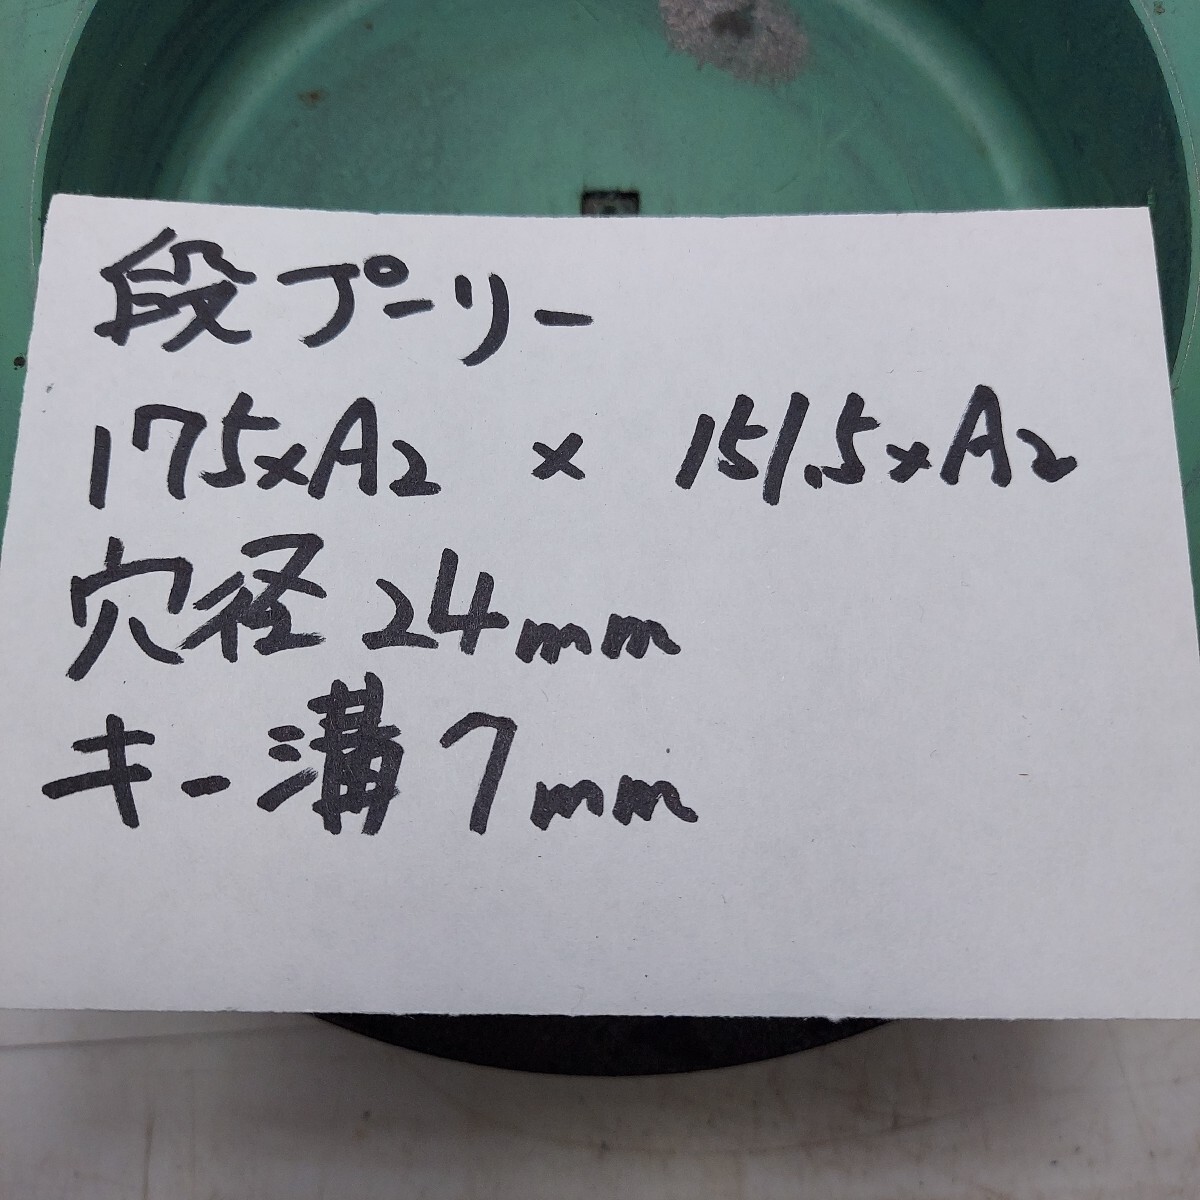 段プーリー
175xA2 x 151.5xA2
穴径24mm
キー溝7mm